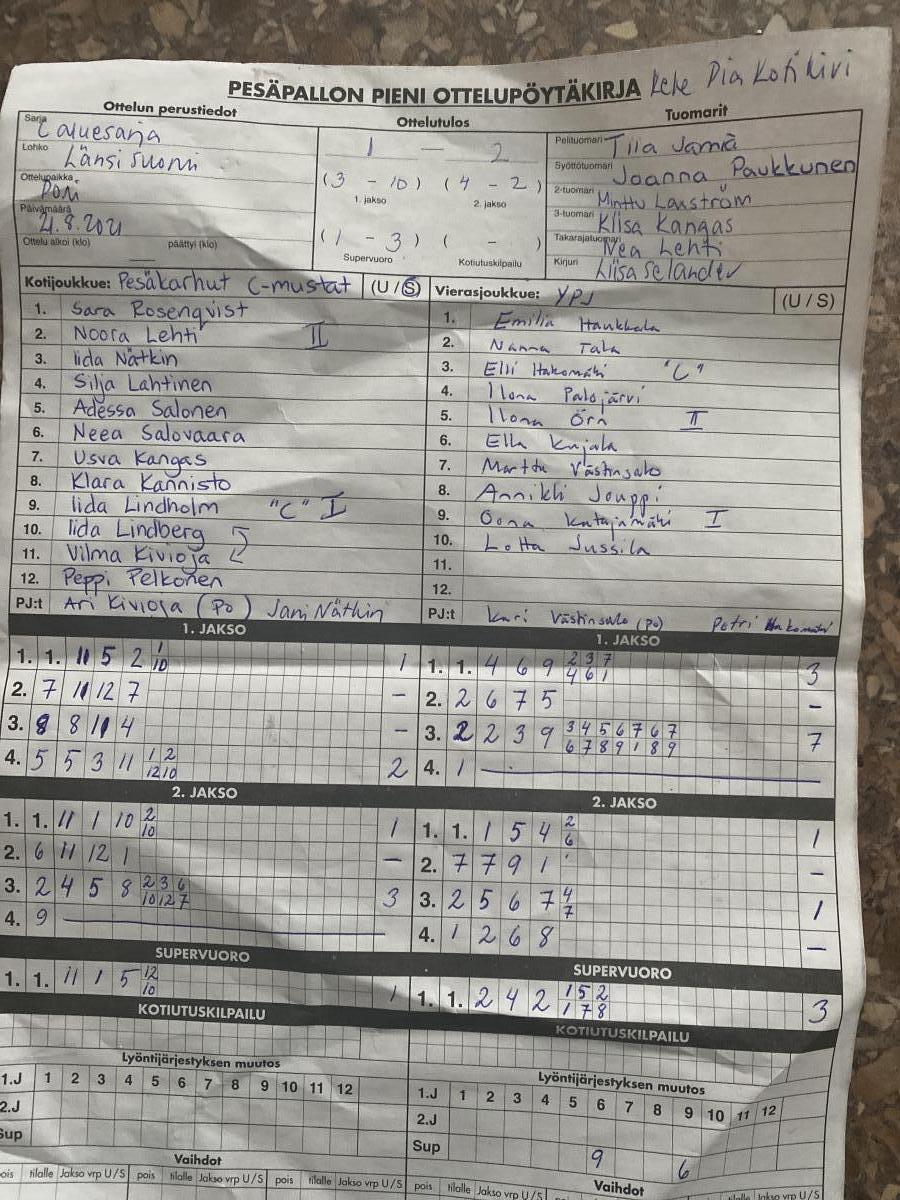 PESÄPALLON PIENI OTTELUPÖYTÄKIRJA Keke Pia Kotikivi
Ottelun perustiedot
Ottelutulos
Tuomarit
Sarja Aluesarja
Lohko Länsi Suomi
Ottelupaikka Pori
Päivämäärä 21.8.2021
Ottelu alkoi (klo) päättyi (klo)
1 — 2
(3 - 10) (4 - 2)
1. jakso 2. jakso
(1 - 3) ( - )
Supervuoro Kotiutuskilpailu
Pelituomari Tiia Jamiä
Syöttötuomari Joanna Paukkunen
2-tuomari Minttu Lauström
3-tuomari Kiisa Kangas
Takarajatuomari Nea Lehti
Kirjuri Liisa Selander
Kotijoukkue: Pesäkarhut C-mustat (U / S)
1. Sara Rosenqvist
2. Noora Lehti II
3. Iida Nätkin
4. Silja Lahtinen
5. Adessa Salonen
6. Neea Salovaara
7. Usva Kangas
8. Klara Kannisto
9. Iida Lindholm "C" I
10. Iida Lindberg
11. Vilma Kivioja
12. Peppi Pelkonen
PJ:t Ari Kivioja (Po) Jani Nätkin
Vierasjoukkue: YPJ (U / S)
1. Emilia Haukkala
2. Nanna Tala
3. Elli Hakomäki "C"
4. Ilona Palojärvi
5. Ilona Örn II
6. Ella Kujala
7. Marttu Västinsalo
8. Annikki Jouppi
9. Oona Katajamäki I
10. Lotta Jussila
11.
12.
PJ:t Kari Västinsalo (Po) Petri Hakomäki
1. JAKSO
1. 1. 11 5 2 1/10 1
2. 7 11 12 7 –
3. 8 8 11 4 –
4. 5 5 3 11 1/12 2/10 2
2. JAKSO
1. 1. 11 1 10 2/10 1
2. 6 11 12 1 –
3. 2 4 5 8 2/10 3/12 6/7 3
4. 9
SUPERVUORO
1. 1. 11 1 5 12/10 1
KOTIUTUSKILPAILU
1. JAKSO
1. 1. 4 6 9 2/4 3/6 7/1 3
2. 2 6 7 5 –
3. 2 2 3 9 3/6 4/7 5/8 6/9 7/1 6/8 7/9 7
4. 1
2. JAKSO
1. 1. 1 5 4 2/6 1
2. 7 7 9 1 –
3. 2 5 6 7 4/7 1
4. 1 2 6 8 –
SUPERVUORO
1. 1. 2 4 2 1/1 5/7 2/8 3
KOTIUTUSKILPAILU
Lyöntijärjestyksen muutos
1.J 1 2 3 4 5 6 7 8 9 10 11 12
2.J
Sup
Vaihdot
pois tilalle Jakso vrp U/S pois tilalle Jakso vrp U/S pois tilalle Jakso vrp U/S
Lyöntijärjestyksen muutos
1.J 1 2 3 4 5 6 7 8 9 10 11 12
2.J
Sup 9 6
Vaihdot
pois tilalle Jakso vrp U/S pois tilalle Jakso vrp U/S